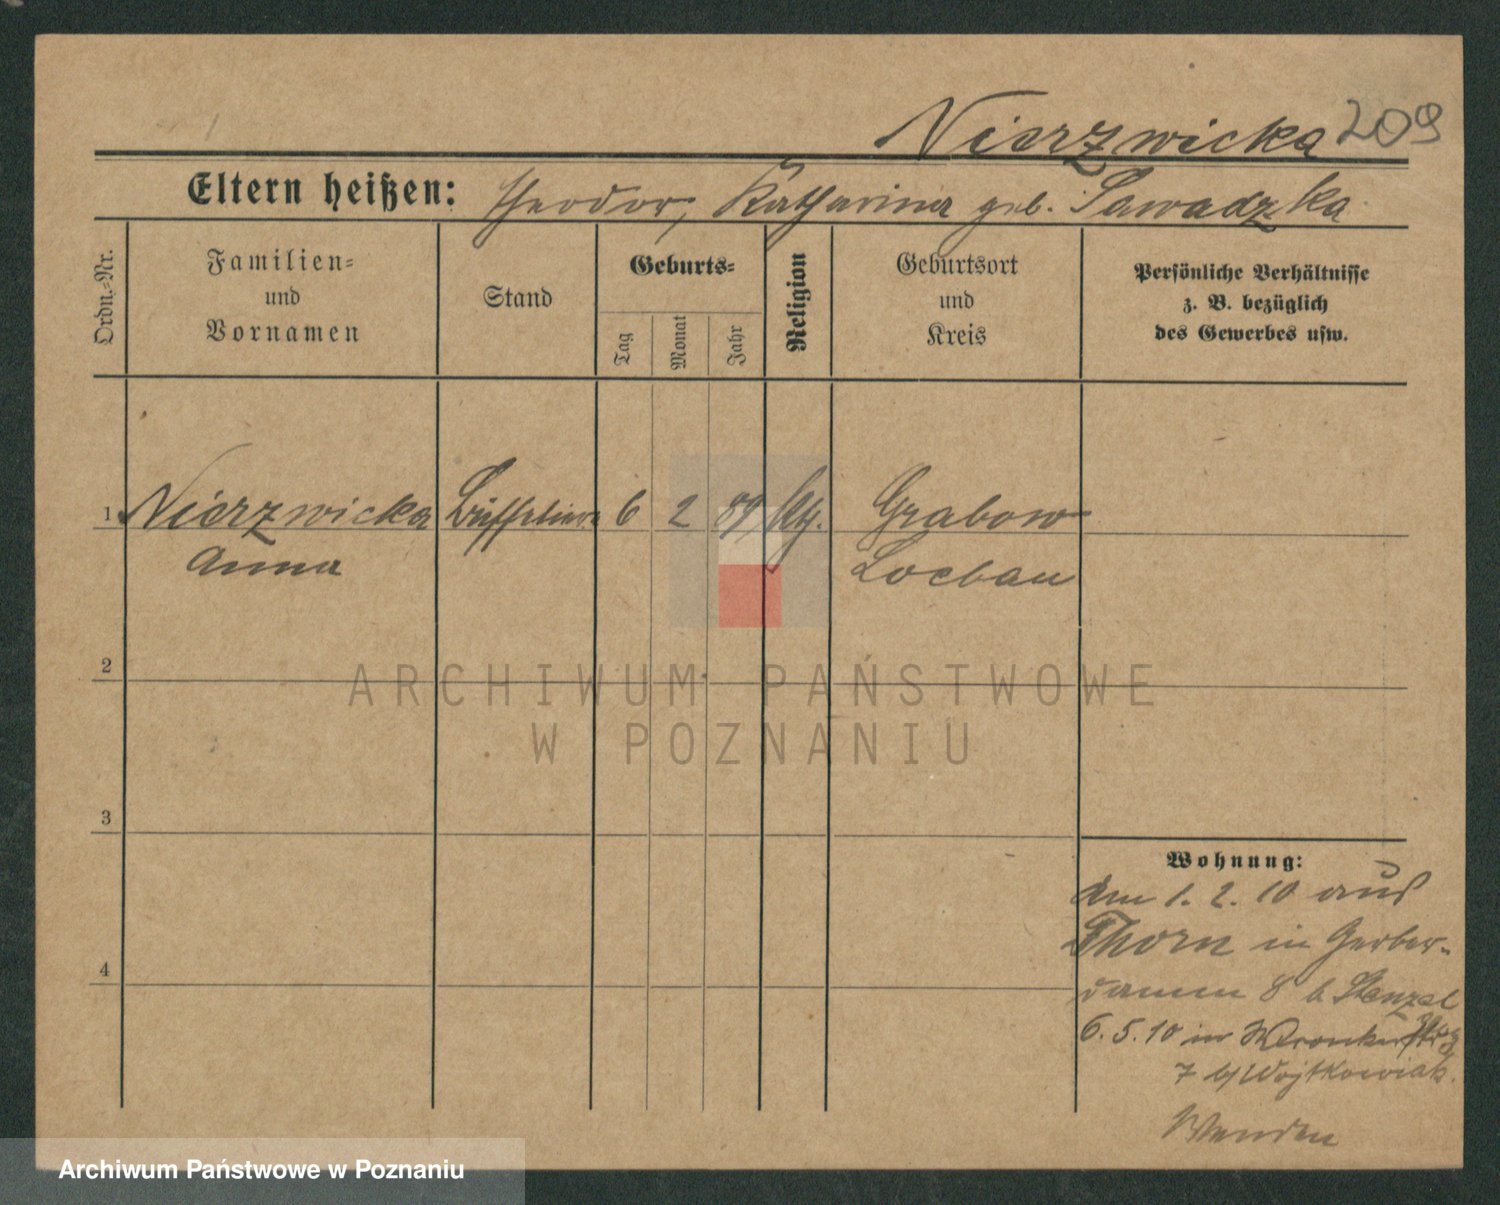 Nierzwicka 209
Eltern heißen: Theodor, Katharina geb. Sawadzka
Ordn.-Nr.
Familien-
und
Vornamen
Stand
Geburts-
Tag
Monat
Jahr
Religion
Geburtsort
und
Kreis
Persönliche Verhältnisse
z. B. bezüglich
des Gewerbes usw.
1 Nierzwicka Büffetier. 6 2 89 kth. Grabow
Anna Loebau
2
3
4
Wohnung:
Am 1. 2. 10 aus
Thorn in Gerber-
damm 8 b Stenzel
6. 5. 10 in Wronkerstr
7 b/ Wojtkowiak.
ARCHIWUM PAŃSTWOWE
W POZNANIU
Archiwum Państwowe w Poznaniu